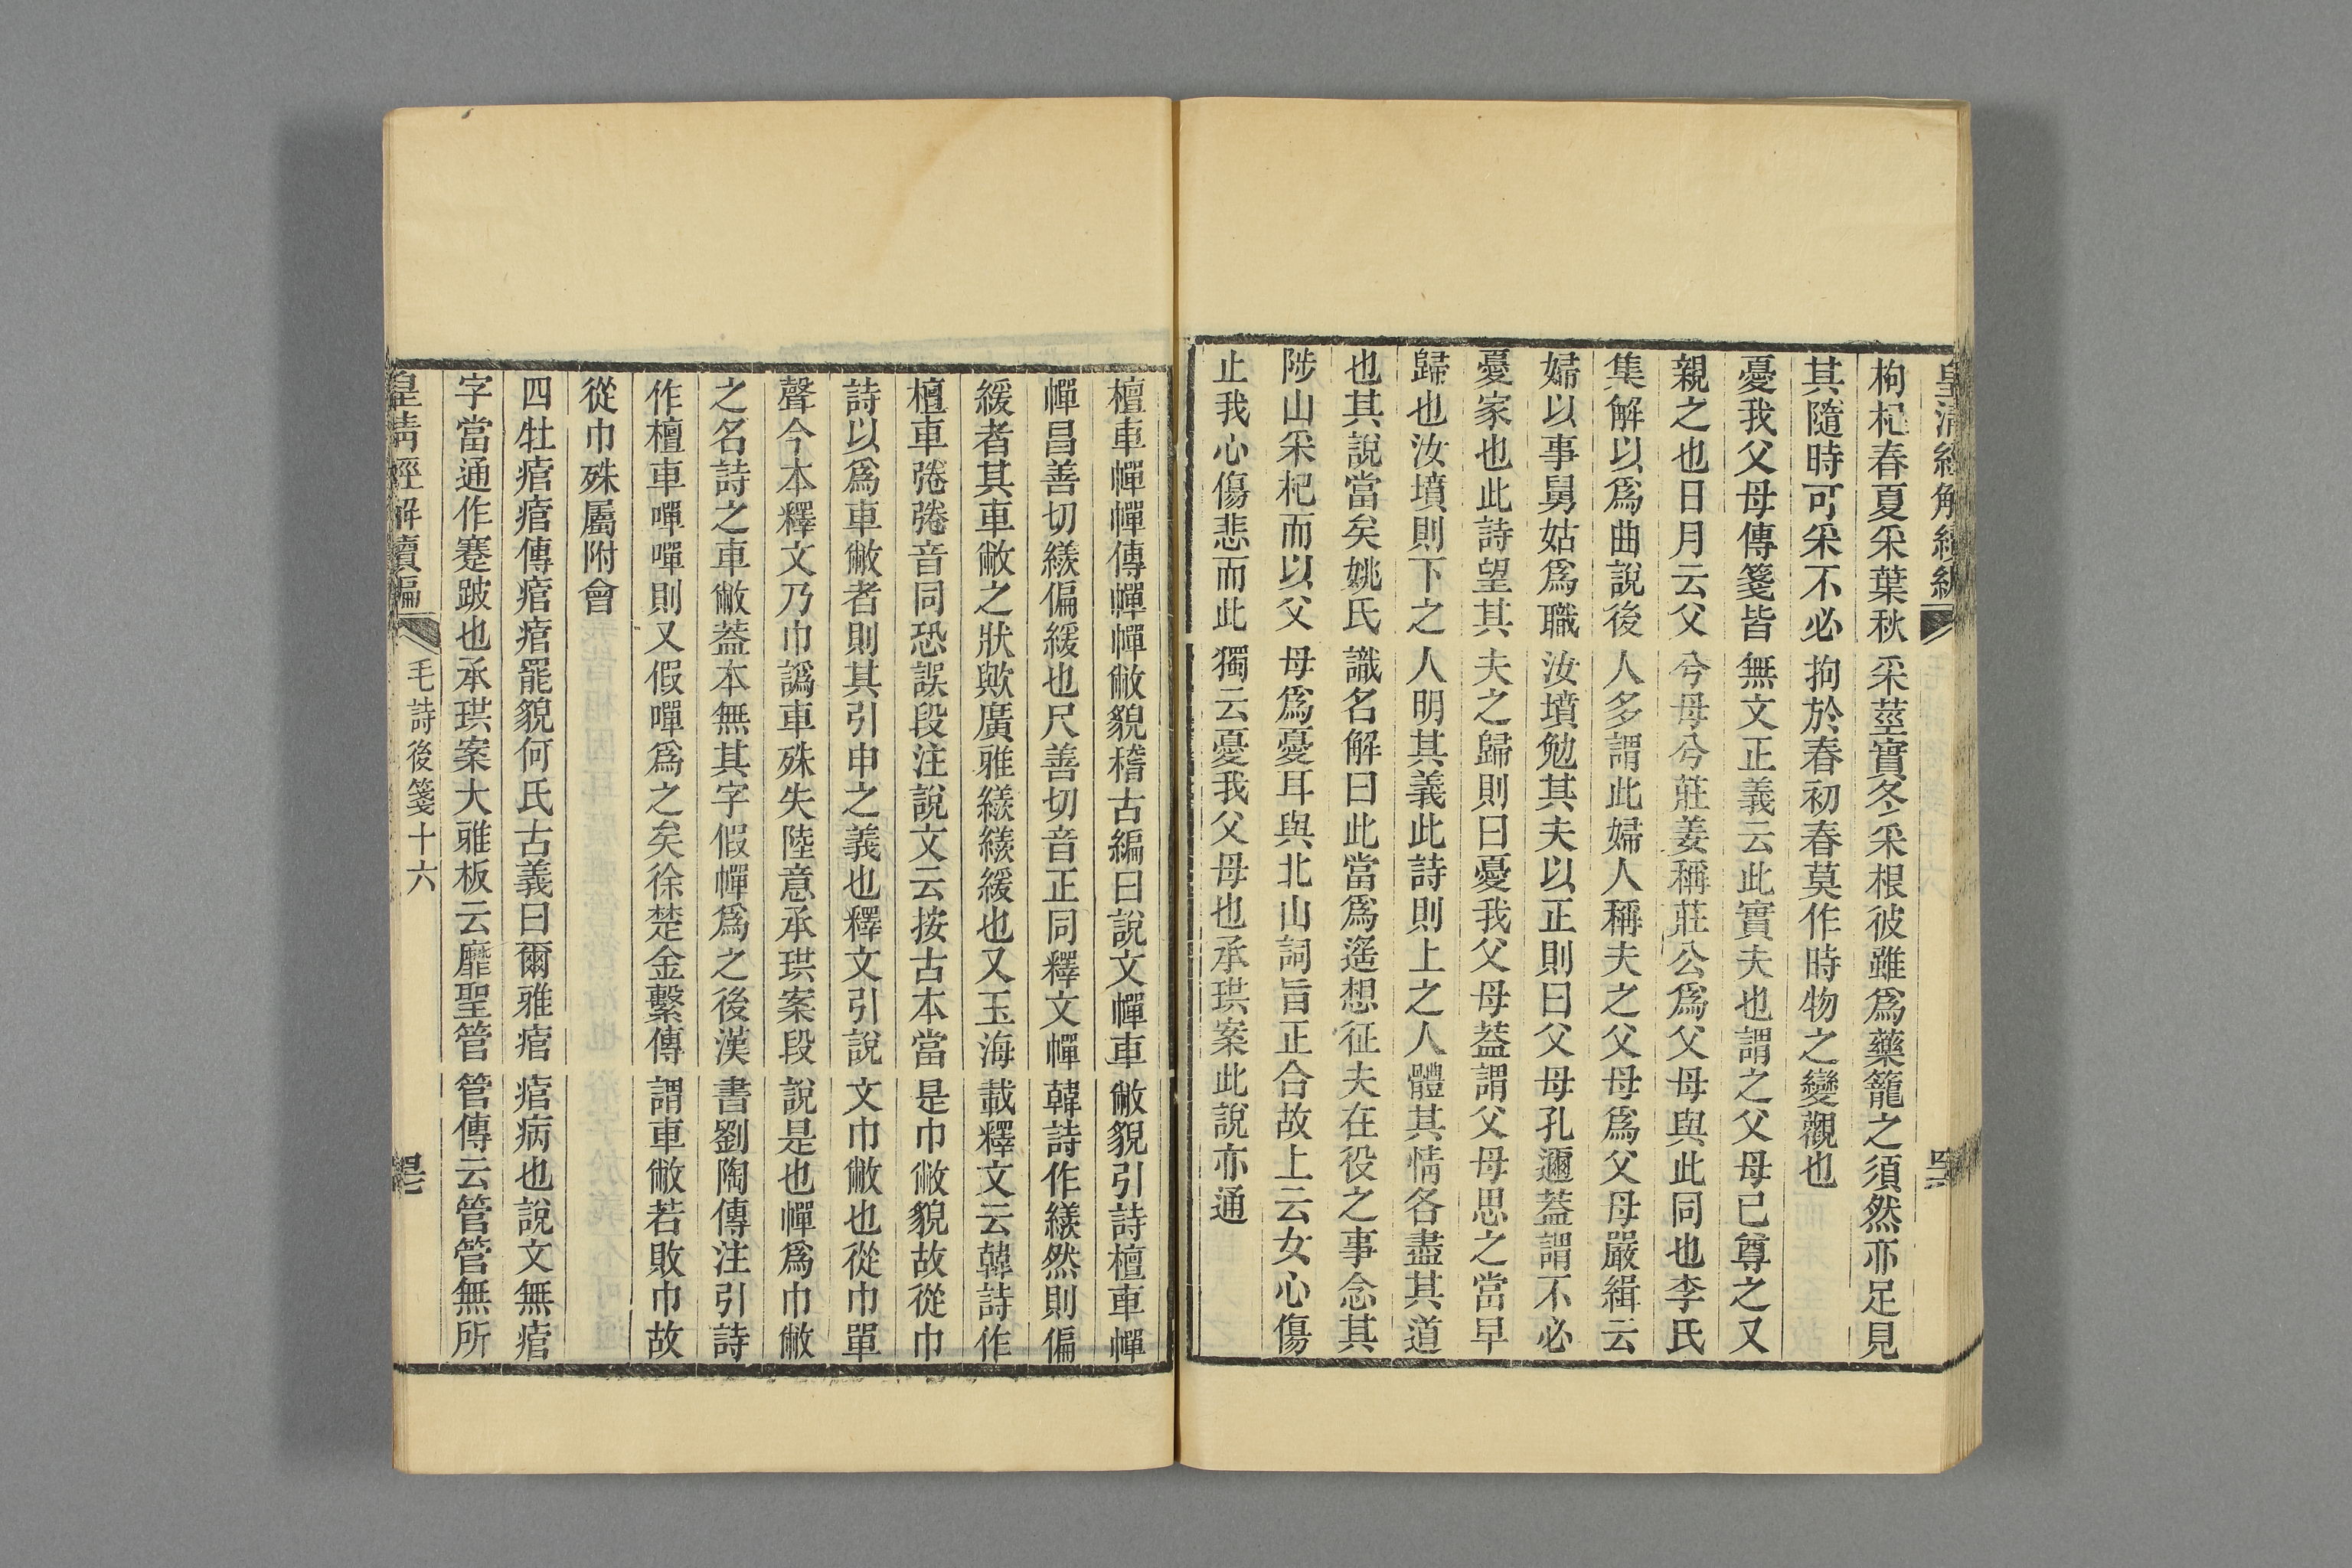 皇清經解續編
枸杞春夏采葉秋采莖實冬采根彼雖爲藥籠之須然亦足見
其隨時可采不必拘於春初春莫作時物之變觀也
憂我父母傳箋皆無文正義云此實夫也謂之父母已尊之又
親之也日月云父兮母兮莊姜稱莊公爲父母與此同也李氏
集解以爲曲說後人多謂此婦人稱夫之父母爲父母嚴緝云
婦以事舅姑爲職汝墳勉其夫以正則曰父母孔邇蓋謂不必
憂家也此詩望其夫之歸則曰憂我父母蓋謂父母思之當早
歸也汝墳則下之人明其義此詩則上之人體其情各盡其道
也其說當矣姚氏識名解曰此當爲遙想征夫在役之事念其
陟山采杞而以父母爲憂耳與北山詞旨正合故上云女心傷
止我心傷悲而此獨云憂我父母也承珙案此說亦通
檀車幝幝傳幝幝敝貌稽古編曰說文幝車敝貌引詩檀車幝
幝昌善切繟偏緩也尺善切音正同釋文幝韓詩作繟然則偏
緩者其車敝之狀歟廣雅繟繟緩也又玉海載釋文云韓詩作
檀車𢐄𢐄音同恐誤段注說文云按古本當是巾敝貌故從巾
詩以爲車敝者則其引申之義也釋文引說文巾敝也從巾單
聲今本釋文乃巾譌車殊失陸意承珙案段說是也幝爲巾敝
之名詩之車敝蓋本無其字假幝爲之後漢書劉陶傳注引詩
作檀車嘽嘽則又假嘽爲之矣徐楚金繫傳謂車敝若敗巾故
從巾殊屬附會
四牡痯痯傳痯痯罷貌何氏古義曰爾雅痯痯病也說文無痯
字當通作蹇跛也承珙案大雅板云靡聖管管傳云管管無所
皇清經解續編
毛詩後箋十六